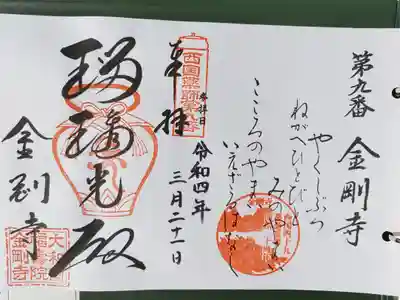 第九番 金剛寺
やくしぶつ
ねがへひとびと
みのやまひ
こころのやまひ
いえざるはなく
西国薬師第九番
参拝日
令和四年
三月二十一日
奉拝
瑠璃光殿
金剛寺
金剛寺